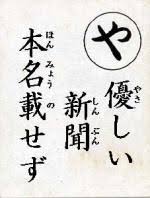 や
優しい
新聞
本名載せず
やさ
しん ぶん
ほん みょう の